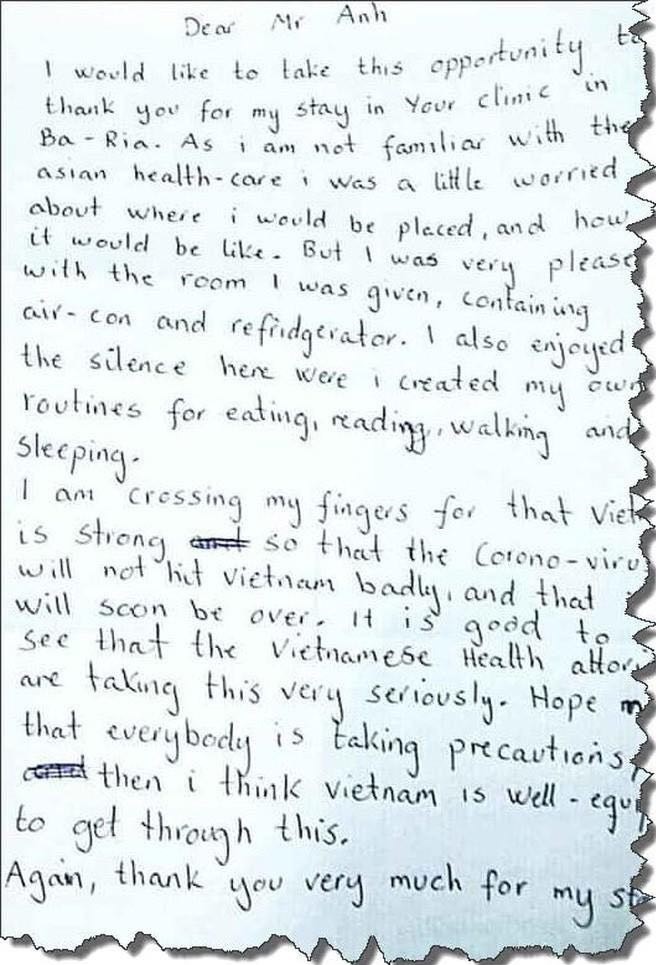 Dear Mr Anh
I would like to take this opportunity to
thank you for my stay in Your clinic in
Ba-Ria. As i am not familiar with the
asian health-care i was a little worried
about where i would be placed, and how
it would be like. But I was very please
with the room I was given, containing
air-con and refridgerator. I also enjoyed
the silence here were i created my own
routines for eating, reading, walking and
sleeping.
I am crossing my fingers for that Viet
is strong so that the Corono-viru
will not hit Vietnam badly, and that
will soon be over. It is good to
see that the Vietnamese Health attor
are taking this very seriously. Hope
that everybody is taking precautions,
then i think vietnam is well-equi
to get through this.
Again, thank you very much for my st